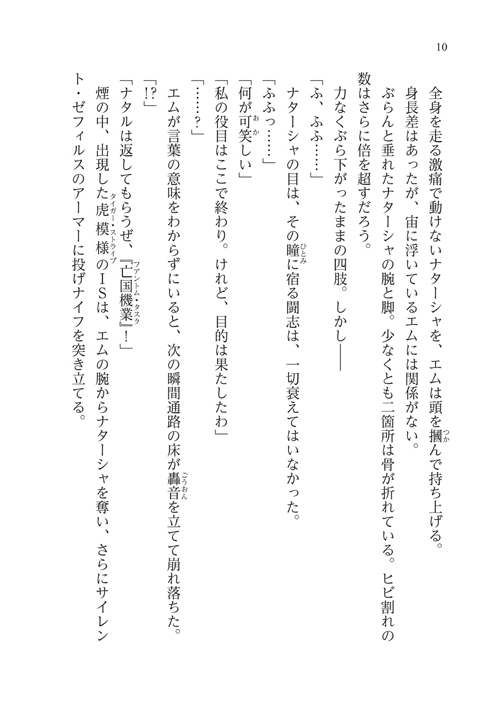 10
全身を走る激痛で動けないナターシャを、エムは頭を摑んで持ち上げる。
身長差はあったが、宙に浮いているエムには関係がない。
ぶらんと垂れたナターシャの腕と脚。少なくとも二箇所は骨が折れている。ヒビ割れの
数はさらに倍を超すだろう。
力なくぶら下がったままの四肢。しかし――
「ふ、ふふ……」
ナターシャの目は、その瞳に宿る闘志は、一切衰えてはいなかった。
「ふふっ……」
「何が可笑しい」
「私の役目はここで終わり。けれど、目的は果たしたわ」
「……?」
エムが言葉の意味をわからずにいると、次の瞬間通路の床が轟音を立てて崩れ落ちた。
「!?」
「ナタルは返してもらうぜ、『亡国機業』!」
煙の中、出現した虎模様のISは、エムの腕からナターシャを奪い、さらにサイレン
ト・ゼフィルスのアーマーに投げナイフを突き立てる。